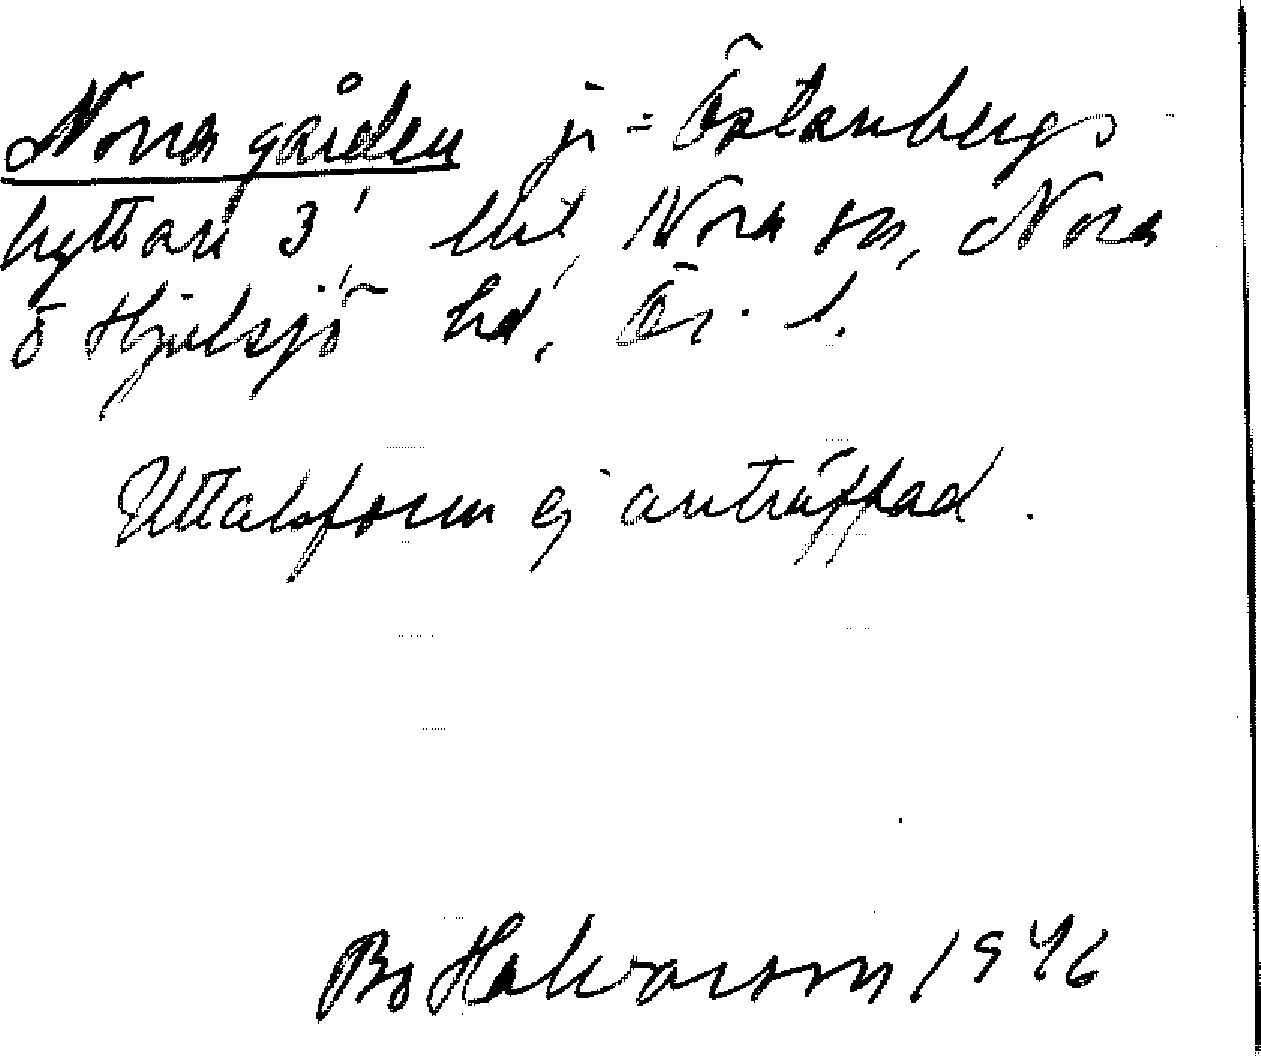 Norra gården ji = Östanbergs
hyttan 3¹, Nora sn, Nora
o Hjulsjö hd, Ör. l.
Uttalsform ej anträffad.
Bo Halvarson 1946